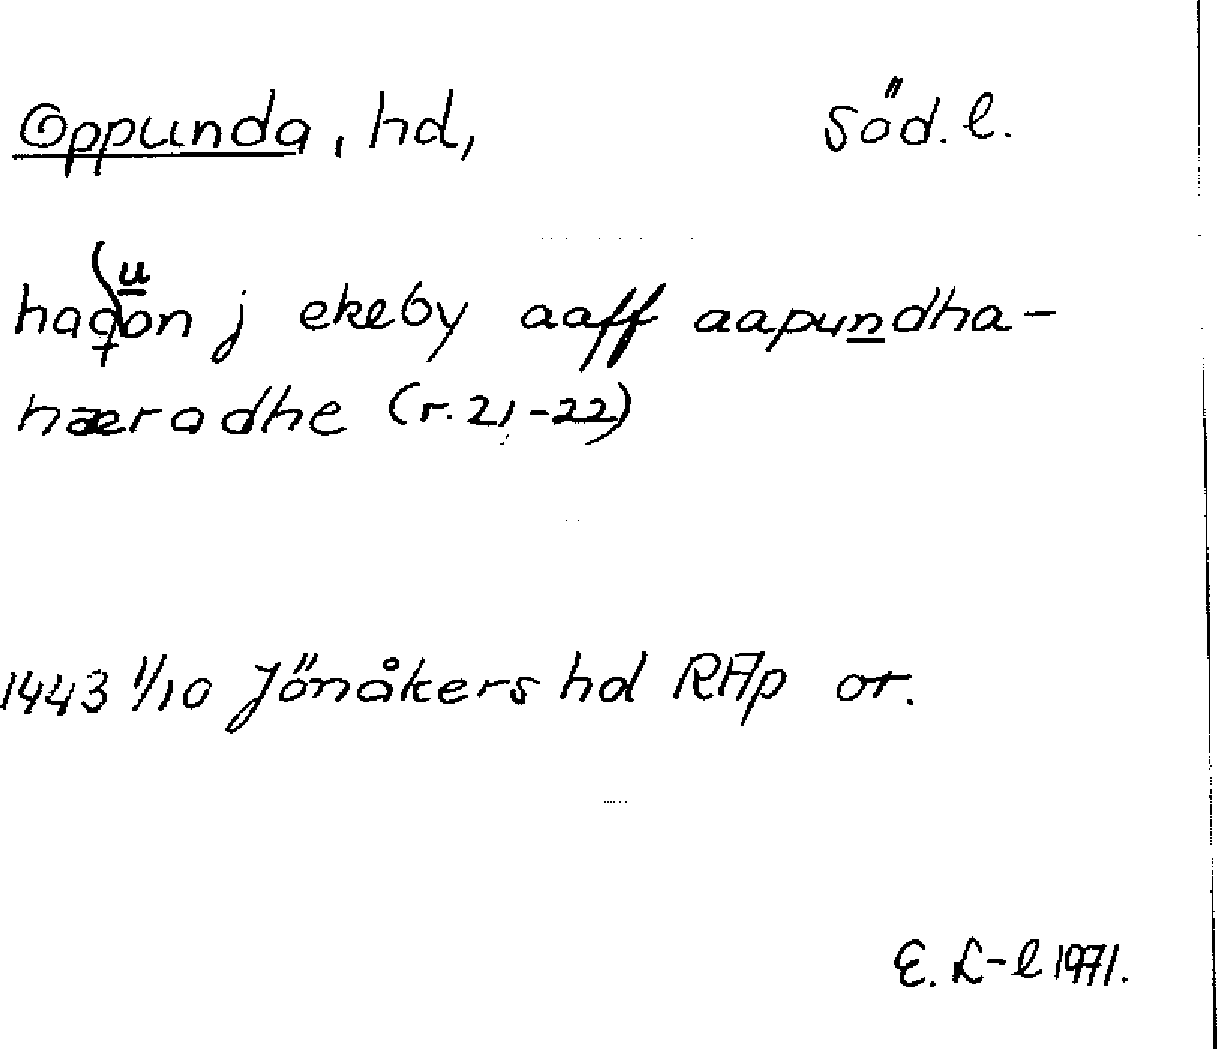 Oppunda, hd, Söd. l.
haquon j ekeby aaff aapundha-
næradhe (r. 21-22)
1443 1/10 Jönåkers hd RAp or.
E. L-l 1971.